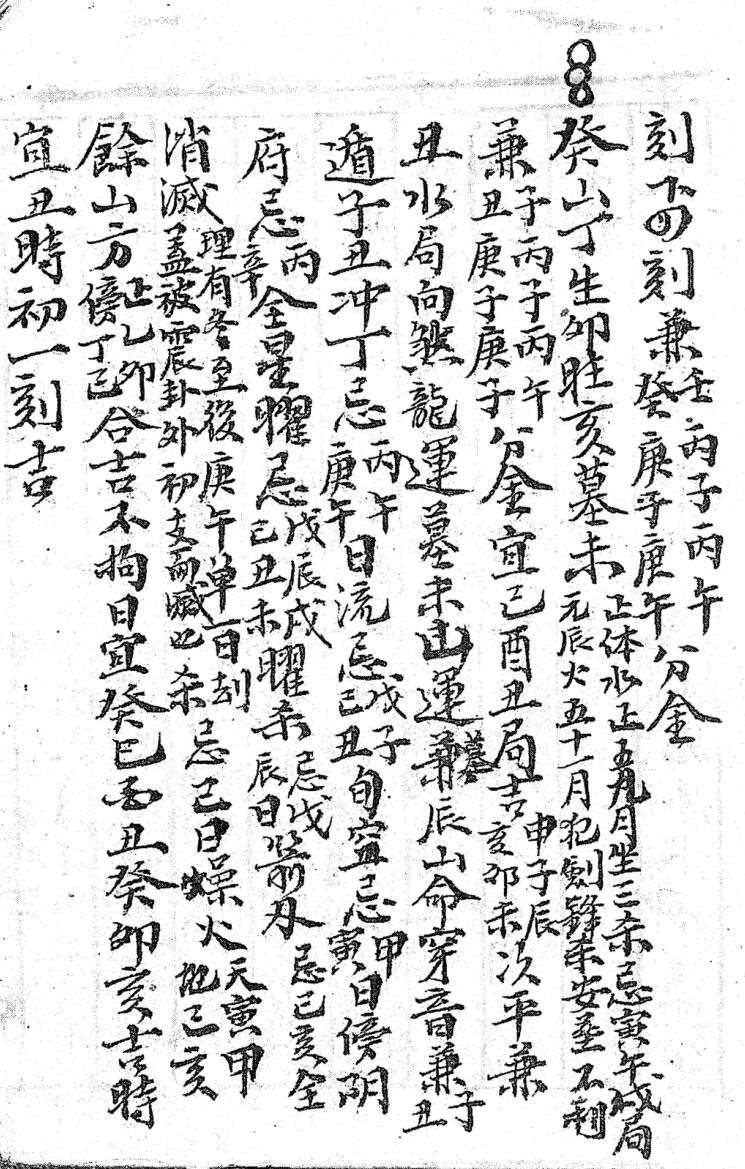 刻下四刻兼壬癸丙子丙午庚子庚午分金
癸山丁生卯旺亥墓未正体水正五九月生三杀忌寅午戌局元辰火五十一月犯劍鋒杀安葬不利
兼子丑丙子丙午庚子庚子分金宜巳酉丑局吉申子辰亥卯未次平兼
丑水局向煞龍運墓未山運墓兼辰山命穿音兼子丑
遁子丑冲丁忌丙午庚午日流忌戊子己丑旬空忌甲寅日傍阴
府忌丙辛全星曜忌戊辰戌己丑未曜杀忌戊辰日箭刃忌己亥全
消滅理有冬至後庚午单百刦盖被震卦外初支而滅也杀忌己日燥火天寅甲地己亥
餘山方傍正乙卯丁巳合吉不拘日宜癸巳酉丑癸卯亥吉時
宜丑時初一刻吉